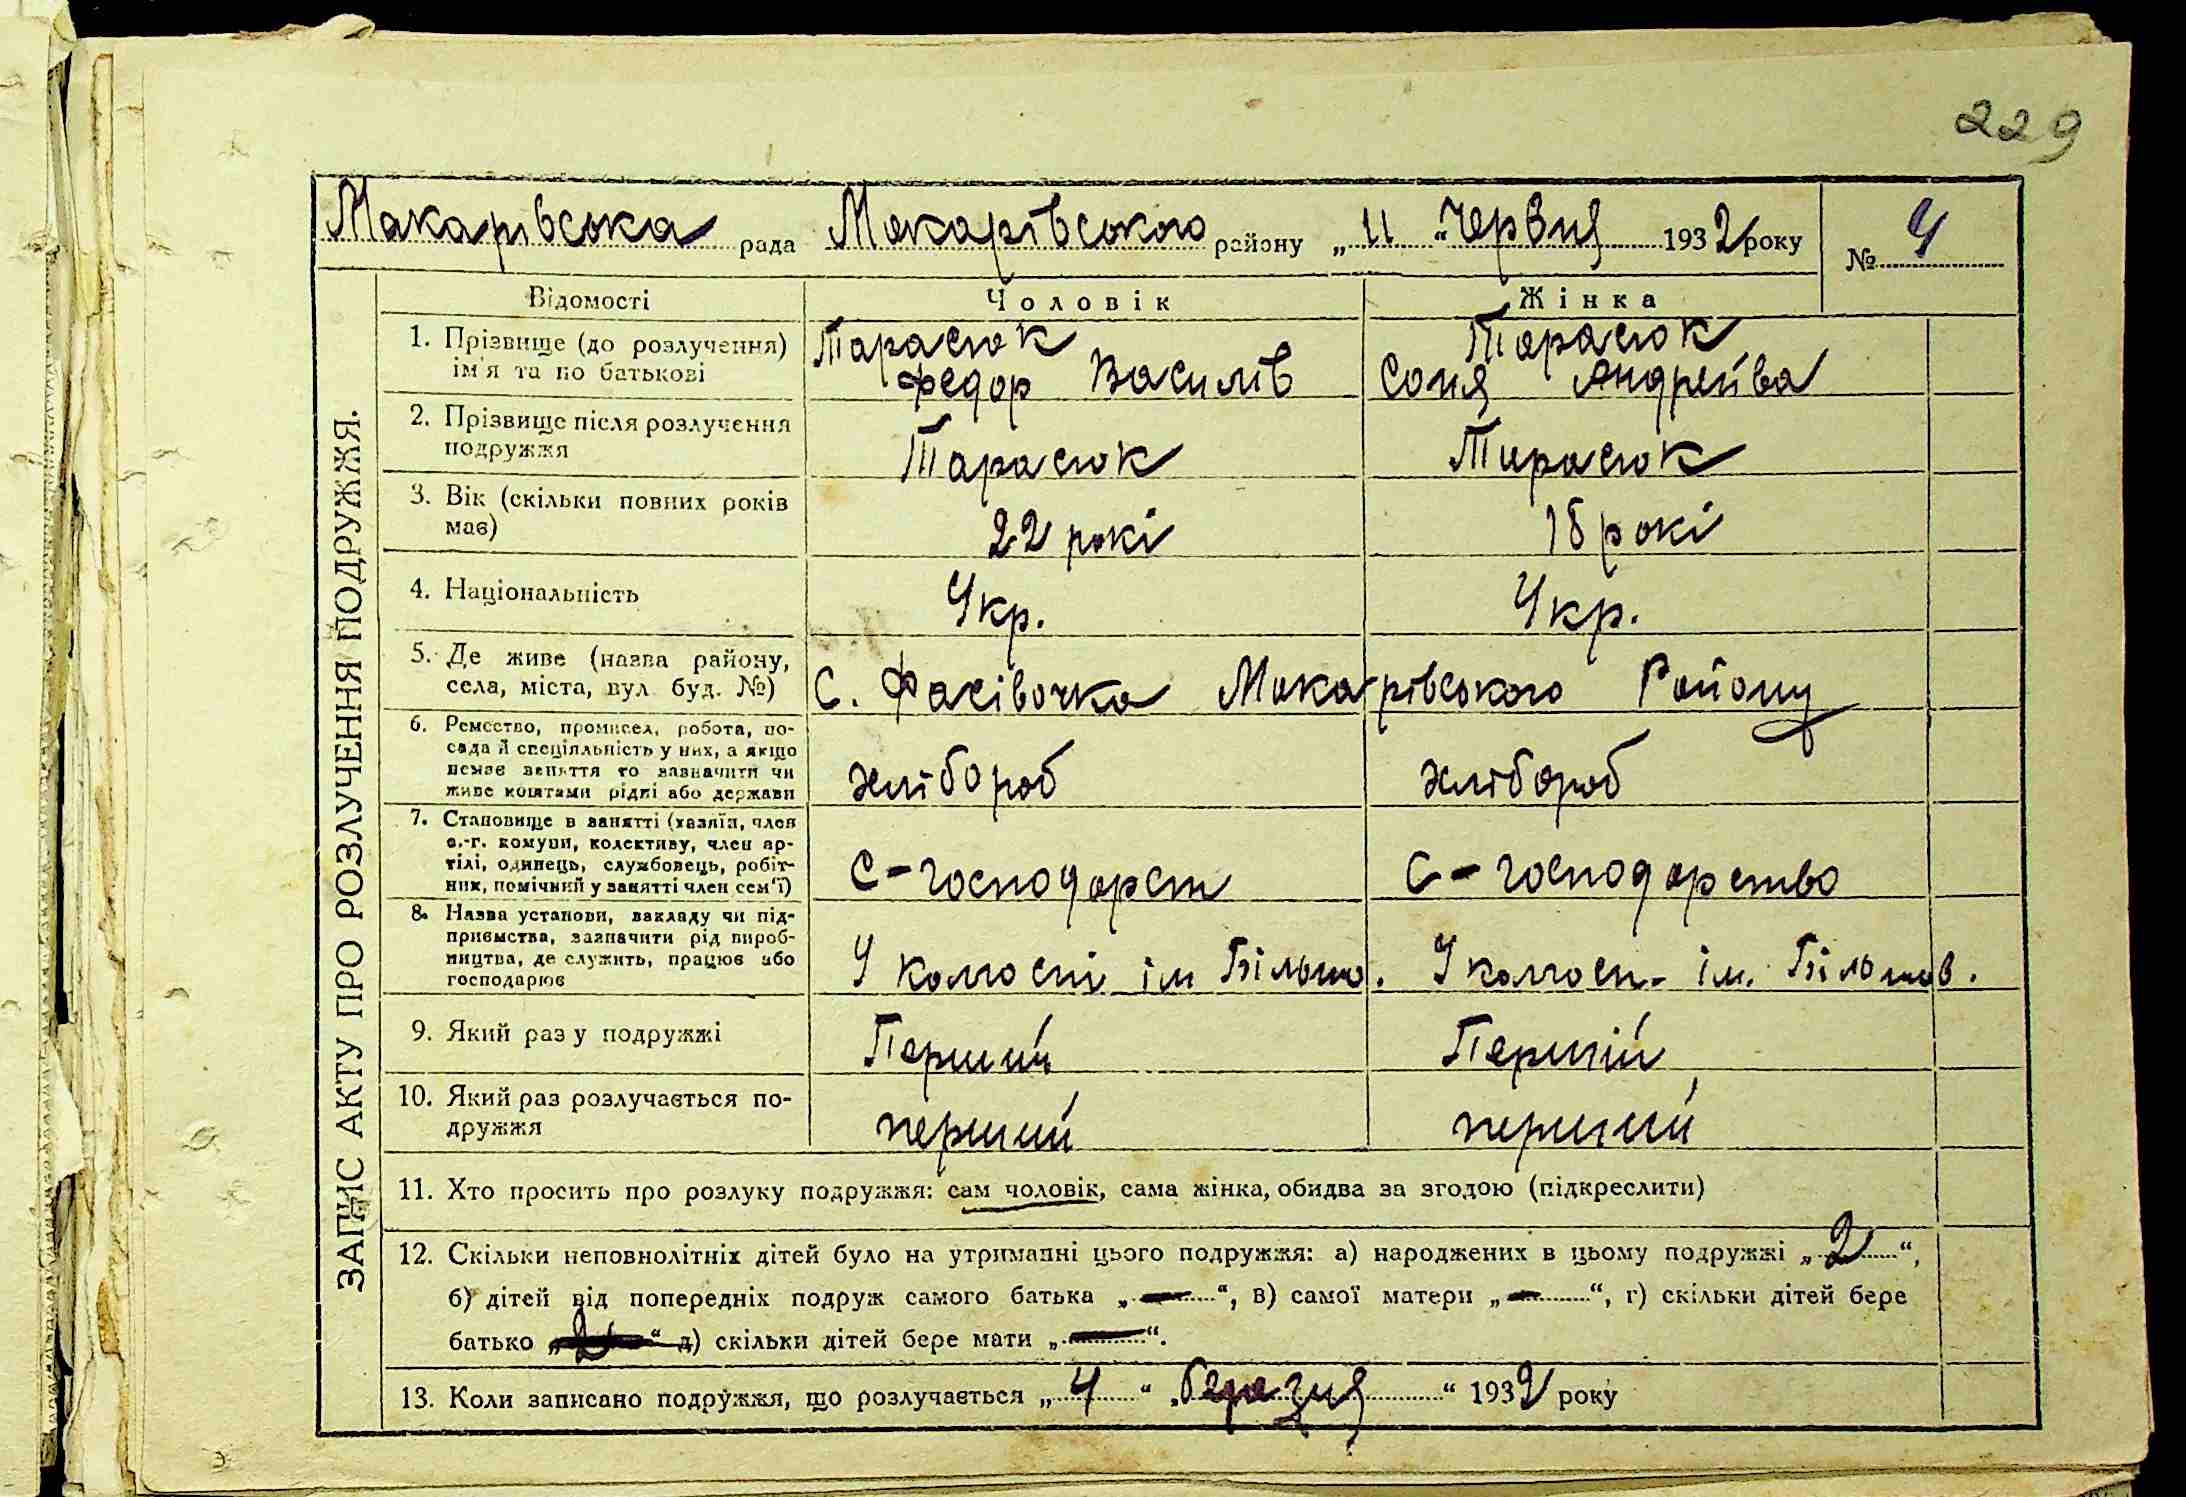 229
Макарівська рада Макарівського району „11“ Червня 1932 року № 4
Відомості Чоловік Жінка
1. Прізвище (до розлучення) Тарасюк Тарасюк
ім'я та по батькові Федор Василів Соня Андреївa
2. Прізвище після розлучення
подружжя Тарасюк Тарасюк
3. Вік (скільки повних років
має) 22 рокі 18 рокі
4. Національність Укр. Укр.
5. Де живе (назва району,
села, міста, вул. буд. №) С. Фасівочка Макарівського Району
6. Ремество, промисел, робота, по-
сада й специіяльність у них, а якщо
немає заняття то зазначити чи
живе коштами рідні або держави хлібороб хлібороб
7. Становище в занятті (хазяїн, член
с.-г. комуни, колективу, член ар-
тілі, одинець, службовець, робіт-
ник, помічний у занятті член сем'ї) С-господарст С-господарство
8. Назва установи, закладу чи під-
приємства, зазначити рід вироб-
ництва, де служить, працює або
господарює У колгоспі ім Більшо. У колгосп. ім. Більшов.
9. Який раз у подружжі Перший Перший
10. Який раз розлучається по-
дружжя перший перший
11. Хто просить про розлуку подружжя: сам чоловік, сама жінка, обидва за згодою (підкреслити)
12. Скільки неповнолітніх дітей було на утриманні цього подружжя: а) народжених в цьому подружжі „2“,
б) дітей від попередніх подруж самого батька „—“, в) самої матери „—“, г) скільки дітей бере
батько „2“ д) скільки дітей бере мати „—“.
13. Коли записано подружжя, що розлучається „4“ „березня“ 1932 року
ЗАПИС АКТУ ПРО РОЗЛУЧЕННЯ ПОДРУЖЖЯ.